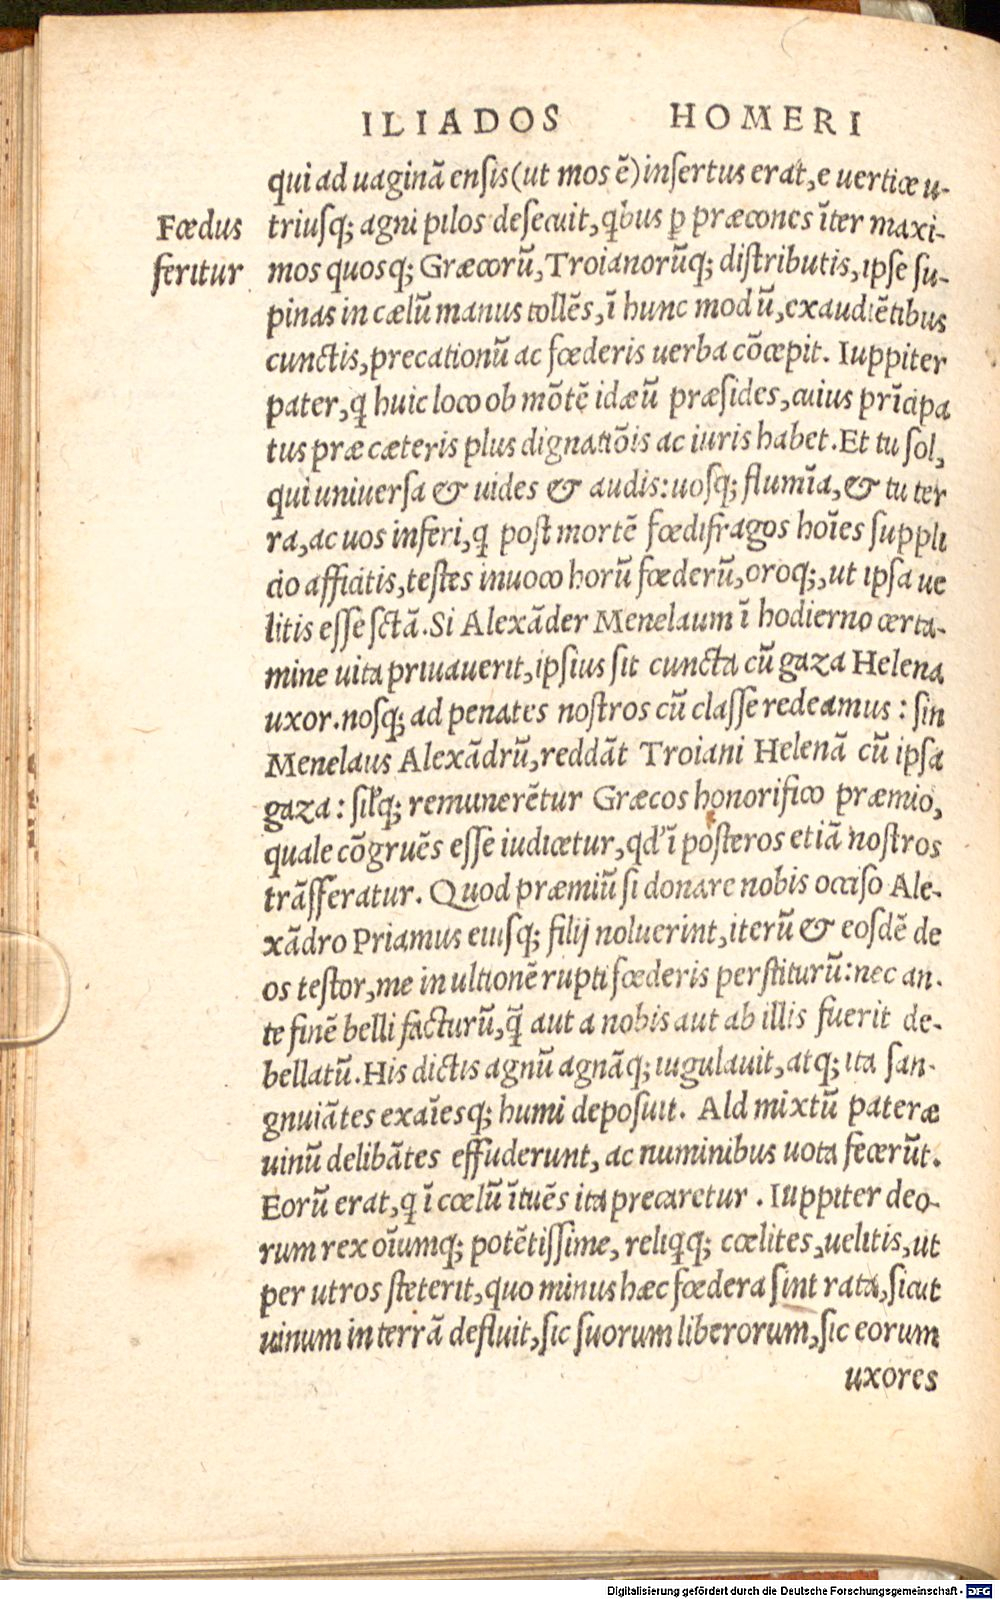 ILIADOS HOMERI
qui ad uaginã ensis (ut mos ẽ) insertus erat, e uertice u-
Fœdus
triusq; agni pilos desecuit, qbus p præcones ĩter maxi-
feritur
mos quosq; Græcorũ, Troianorũq; distributis, ipse su-
pinas in cælũ manus tollẽs, ĩ hunc modũ, exaudiẽtibus
cunctis, precationũ ac fœderis uerba cõcœpit. Iuppiter
pater, q huic loco ob mõtẽ idæũ præsides, cuius prĩcipa
tus præ cæteris plus dignatiõis ac iuris habet. Et tu sol,
qui uniuersa & uides & audis: uosq; flumĩa, & tu ter
ra, ac uos inferi, q post mortẽ fœdifragos hoĩes suppli
cio afficitis, testes inuoco horũ fœderũ, oroq;, ut ipsa ue
litis esse sctã. Si Alexãder Menelaum ĩ hodierno certa-
mine uita priuauerit, ipsius sit cuncta cũ gaza Helena
uxor. nosq; ad penates nostros cũ classe redeamus: sin
Menelaus Alexãdrũ, reddãt Troiani Helenã cũ ipsa
gaza: silq; remunerẽtur Græcos honorifico præmio,
quale cõgruẽs esse iudicetur, qd' ĩ posteros etiã nostros
trãsferatur. Quod præmiũ si donare nobis occiso Ale-
xãdro Priamus eiusq; filij noluerint, iterũ & eosdẽ de
os testor, me in ultionẽ rupti fœderis perstiturũ: nec an-
te finẽ belli facturũ, q̃ aut a nobis aut ab illis fuerit de-
bellatũ. His dictis agnũ agnãq; iugulauit, atq; ita san-
gnuiãtes exaĩesq; humi deposuit. Alii mixtũ pateræ
uinũ delibãtes effuderunt, ac numinibus uota fecerũt.
Eorũ erat, q ĩ cœlũ ĩtuẽs ita precaretur. Iuppiter deo-
rum rex oĩumq; potẽtissime, reliqq; cœlites, uelitis, ut
per utros steterit, quo minus hæc fœdera sint rata, sicut
uinum in terrã defluit, sic suorum liberorum, sic eorum
uxores
Digitalisierung gefördert durch die Deutsche Forschungsgemeinschaft - DFG